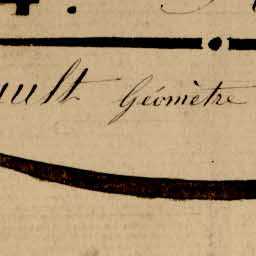 ault Géomètre